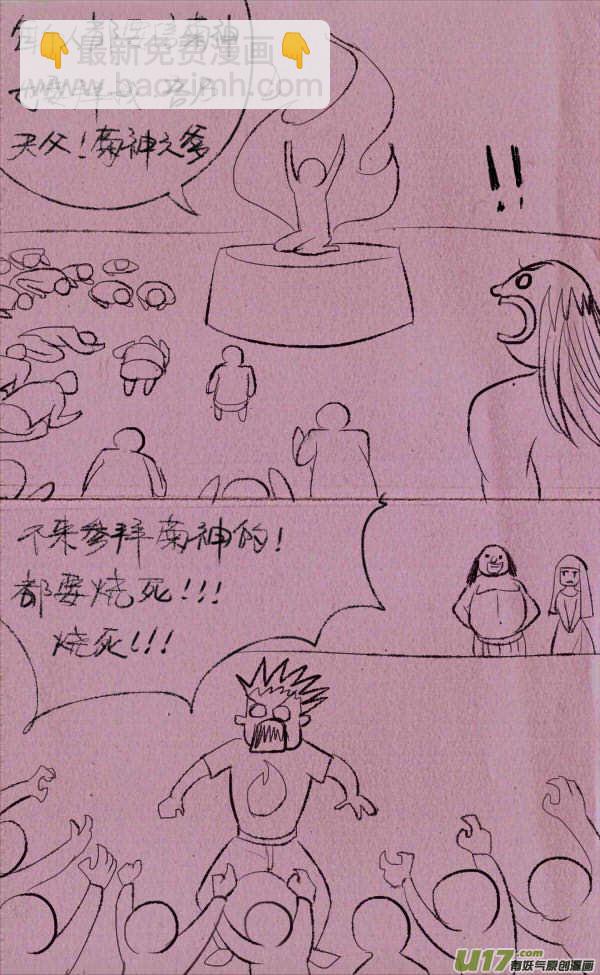 👇最新免费漫画👇
www.baozimh.com
天父！菊神之爹
!!
不来参拜菊神的！
都要烧死!!!
烧死!!!
U17.com
有妖气原创漫画